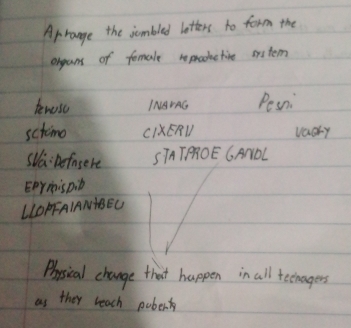 Arrange the jumbled letters to form the
organs of female reproductive system
terusu INAVAG Pesni
sctemo CIXERV vaoty
SVai:Defnsere STATPROE GANDL
EPYmispib
LLOPFAIANTBEU
Physical change that happen in all teenagers
as they reach puberty